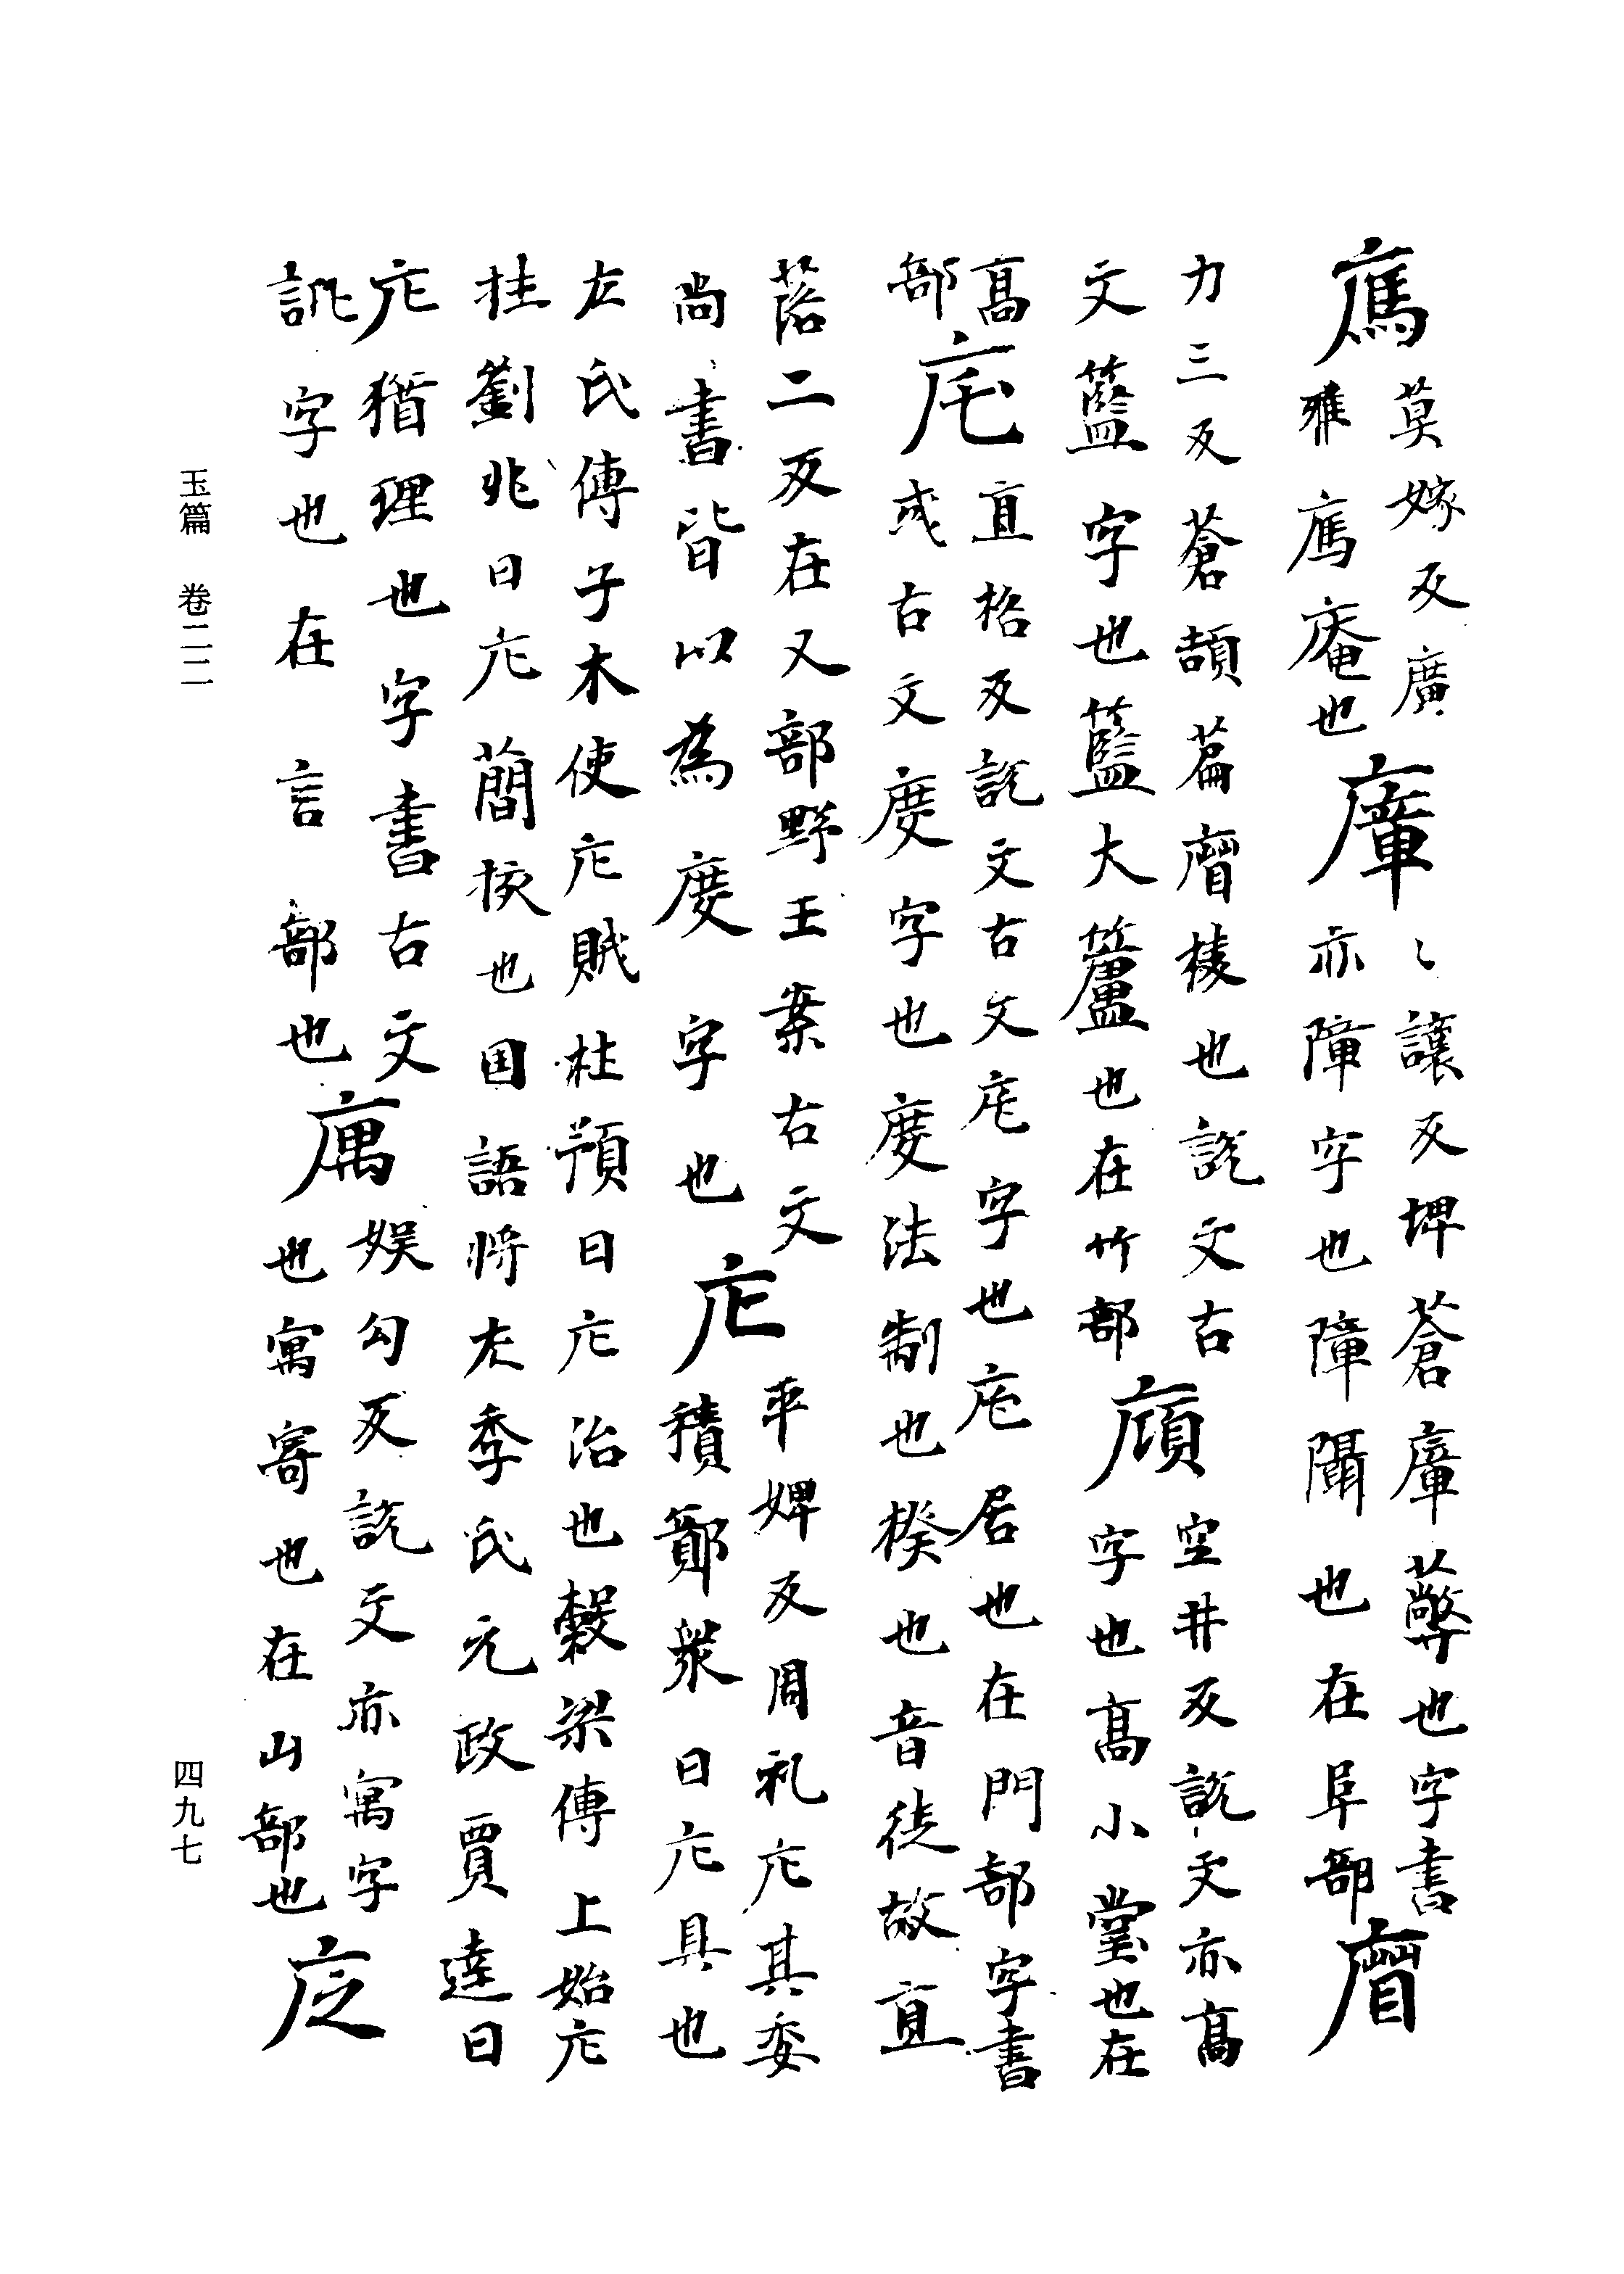 𢊗
莫嫁反廣
雅𢊗庵也
㢓
〻讓反埤蒼㢓也字書
亦障字也障也在阜部
力三反蒼頡篇棱也說文古
文籃字也籃大也在竹部
廎
空井反說文亦高
字也高小堂也在
高
部
㡯
直格反說文古文宅字也宅居也在門部字書
或古文度字也度法制也揆也音徒故直
落二反在又部野王案古文
尚書皆以為度字也
庀
平婢反周礼庀其委
積鄭衆曰庀具也
左氏傳子木使庀賦杜預曰庀治也穀梁傳上始庀
牲劉兆曰庀簡核也国語將庀季氏之政賈逵曰
庀猶理也字書古文
訿字也在言部也
庽
娛勾反說文亦寓字
也寓寄也在山部也
㡴
玉篇 卷二二
四九七